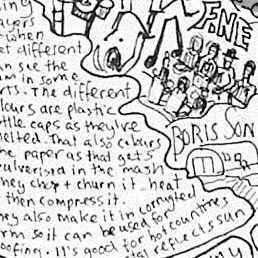 ayers
when
et different
n see the
m in some
rts. The different
lours are plastic
ttle caps as they've
elted. That also colours
he paper as that gets
ulverised in the mash
hey chop + churn it, heat
then compress it.
hey also make it in corrugted
rm so it can be used for
oofing. It's good for hot countries
tal reflects sun
FNE
BORIS SON